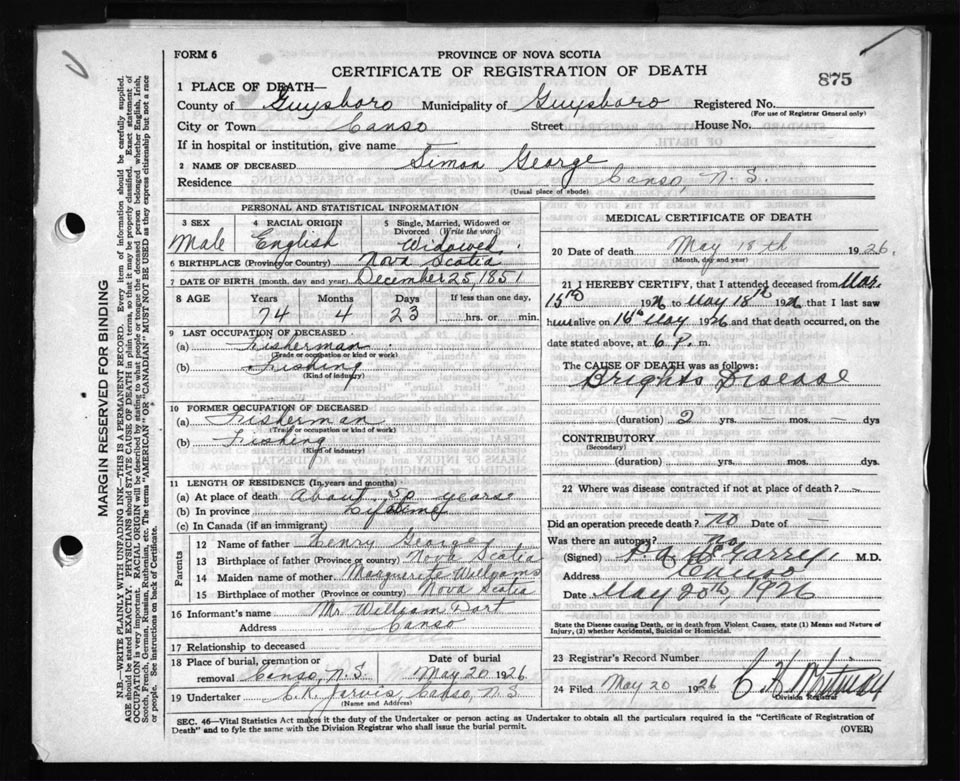 FORM 6
PROVINCE OF NOVA SCOTIA
CERTIFICATE OF REGISTRATION OF DEATH
875
1 PLACE OF DEATH—
County of Guysboro Municipality of Guysboro Registered No.
(For use of Registrar General only)
City or Town Canso Street House No.
If in hospital or institution, give name
2 NAME OF DECEASED Simon George
Residence Canso, N. S.
(Usual place of abode)
PERSONAL AND STATISTICAL INFORMATION
3 SEX Male
4 RACIAL ORIGIN English
5 Single, Married, Widowed or Divorced (Write the word) Widowed
6 BIRTHPLACE (Province or Country) Nova Scotia
7 DATE OF BIRTH (month, day and year) December 25, 1851
8 AGE Years Months Days If less than one day,
74 4 23 hrs. or min.
9 LAST OCCUPATION OF DECEASED
(a) Fisherman
(Trade or occupation or kind of work)
(b) Fishing
(Kind of industry)
10 FORMER OCCUPATION OF DECEASED
(a) Fisherman
(Trade or occupation or kind of work)
(b) Fishing
(Kind of industry)
11 LENGTH OF RESIDENCE (In years and months)
(a) At place of death About 50 years
(b) In province Lifetime
(c) In Canada (if an immigrant)
Parents
12 Name of father Henry George
13 Birthplace of father (Province or country) Nova Scotia
14 Maiden name of mother Marguerite Williams
15 Birthplace of mother (Province or country) Nova Scotia
16 Informant's name Mr William Dort
Address Canso
17 Relationship to deceased
18 Place of burial, cremation or removal Canso, N.S. Date of burial May 20 1926
19 Undertaker C. K. Jarvis, Canso, N S
(Name and Address)
MEDICAL CERTIFICATE OF DEATH
20 Date of death May 18th 1926
(Month, day and year)
21 I HEREBY CERTIFY, that I attended deceased from Mar.
15th 1926 to May 18th 1926 that I last saw
him alive on 16th May 1926 and that death occurred, on the
date stated above, at 6 P. m.
The CAUSE OF DEATH was as follows:
Brights Disease
(duration) 2 yrs. mos. dys
CONTRIBUTORY
(Secondary)
(duration) yrs. mos. dys.
22 Where was disease contracted if not at place of death? —
Did an operation precede death? no Date of —
Was there an autopsy? no
(Signed) P. A. McGarry, M.D.
Address Canso
Date May 20th, 1926
State the Disease causing Death, or in death from Violent Causes, state (1) Means and Nature of
Injury, (2) whether Accidental, Suicidal or Homicidal.
23 Registrar's Record Number
24 Filed May 20 1926 C H Whitman
Division Registrar
SEC. 46—Vital Statistics Act makes it the duty of the Undertaker or person acting as Undertaker to obtain all the particulars required in the "Certificate of Registration of
Death" and to fyle the same with the Division Registrar who shall issue the burial permit. (OVER)
MARGIN RESERVED FOR BINDING
N.B.—WRITE PLAINLY WITH UNFADING INK—THIS IS A PERMANENT RECORD. Every item of information should be carefully supplied.
AGE should be stated EXACTLY. PHYSICIANS should STATE CAUSE OF DEATH in plain terms, so that it may be properly classified. Exact statement of
OCCUPATION is very important. RACIAL ORIGIN will be described by stating to what people or tongue the deceased person belonged whether English, Irish,
Scotch, French, German, Russian, Ruthenian, etc. The terms "AMERICAN" OR "CANADIAN" MUST NOT BE USED as they express citizenship but not a race
or people. See instructions on back of Certificate.